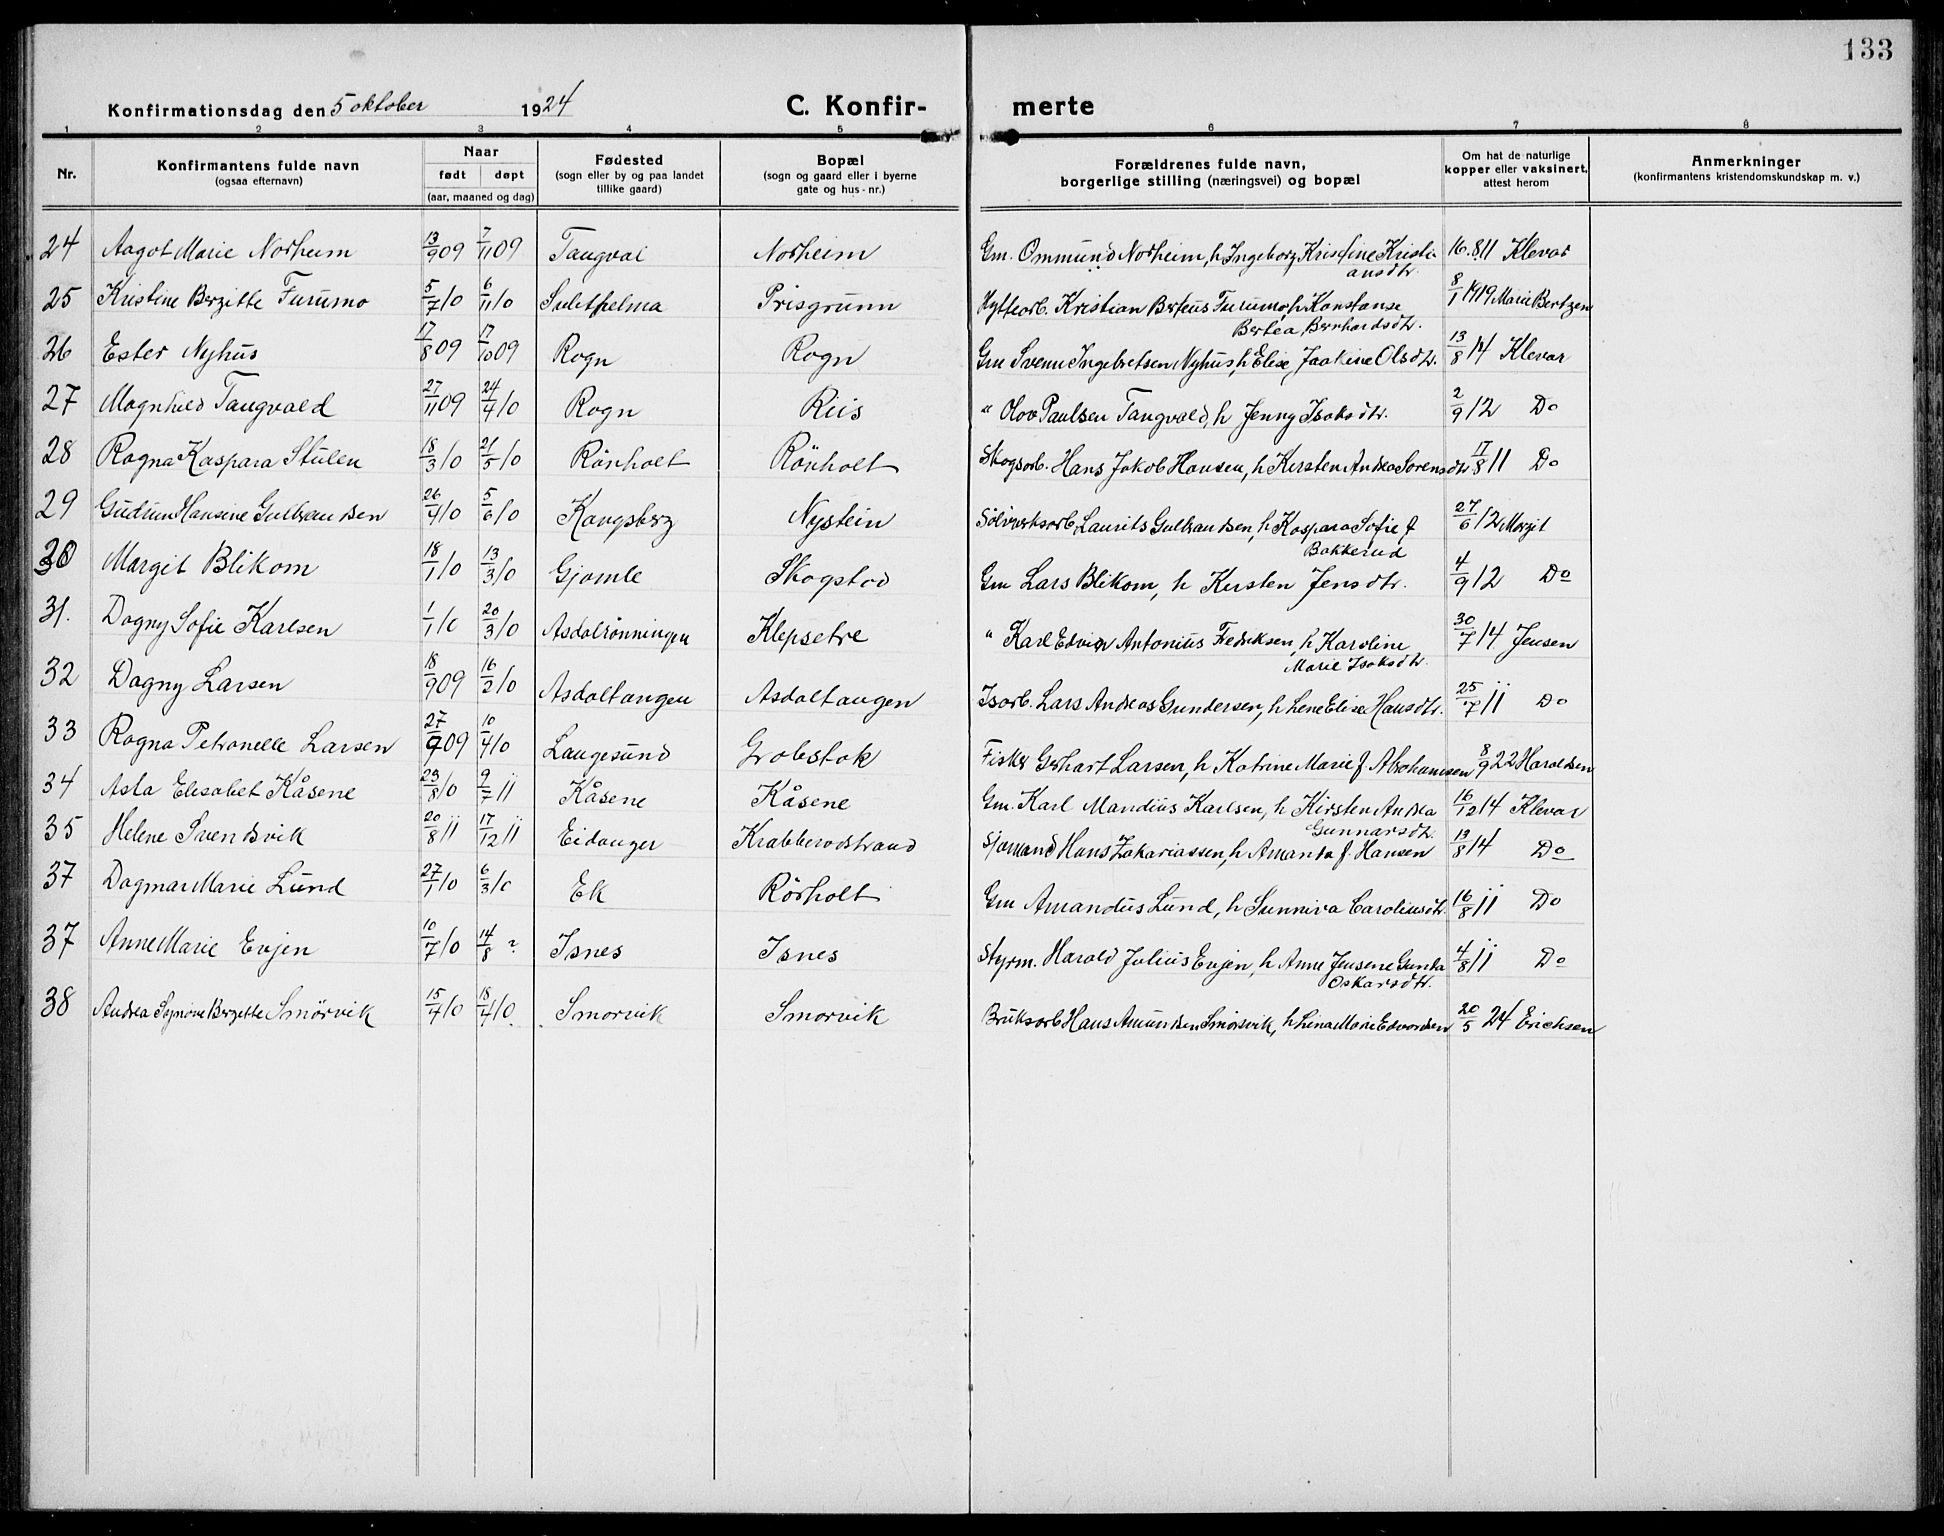 133
Konfirmationsdag den 5 oktober 1924 C. Konfir- merte
1 2 3 4 5 6 7 8
Nr. Konfirmantens fulde navn (ogsaa efternavn) Naar født døpt (aar, maaned og dag) Fødested (sogn eller by og paa landet tillike gaard) Bopæl (sogn og gaard eller i byerne gate og hus-nr.) Forældrenes fulde navn, borgerlige stilling (næringsvei) og bopæl Om hat de naturlige kopper eller vaksinert, attest herom Anmerkninger (konfirmantens kristendomskundskap m. v.)
24 Aagot Marie Norheim 13/9 09 7/11 09 Tangval Norheim Gm. Ommund Norheim, h Ingeborg Kristine Kristiansdtr. 16.8 11 Klevar
25 Kristine Bergitte Furumo 5/7 10 6/11 10 Sulithelma Prisgrunn Hytteorb. Kristian Berteus Furumo, h Konstanse Bertea Bernhardsdtr. 8/1 1919 Marie Bertzen
26 Ester Nyhus 17/8 09 17/10 09 Rogn Rogn Gm Svenn Ingebretsen Nyhus, h Elise Joakine Olsdtr. 13/8 14 Klevar
27 Magnhild Tangvald 27/11 09 24/4 10 Rogn Riis " Olav Paulsen Tangvald, h Jenny Isaksdtr. 2/9 12 Do
28 Ragna Kaspara Stulen 18/3 10 21/5 10 Rönholt Rönholt Skogsorb. Hans Jakob Hansen, h Kirsten Andrea Sorensdtr 17/8 11 Do
29 Gudrun Hansine Gulbrandsen 26/4 10 5/6 10 Kongsberg Nystein Sölvverksorb Laurits Gulbrandsen, h Kaspara Sofie f Bakkerud 27/6 12 Margit
30 Margit Blikom 18/1 10 13/3 10 Gjomle Skogstad Gm Lars Blikom, h Kirsten Jensdtr. 4/9 12 Do
31. Dagny Sofie Karlsen 1/1 10 20/3 10 Asdalrönningen Klepsetre " Karl Edvin Antonius Fredriksen, h Karoline Marie Isaksdtr. 30/7 14 Jensen
32 Dagny Larsen 18/9 09 16/2 10 Asdaltangen Asdaltangen Isorb. Lars Andreas Gundersen, h Lene Elise Hansdtr. 25/7 11 Do
33 Ragna Petronelle Larsen 27/9 09 10/4 10 Langesund Grobstok Fisker Gerhart Larsen, h Katrine Marie f Abrahamsen 8/9 22 Haraldsen
34 Asta Elisabet Kåsene 23/8 10 9/7 11 Kåsene Kåsene Gm. Karl Mandius Karlsen, h Kirsten Andrea Gunnarsdtr. 16/12 14 Klevar
35 Helene Svendsvik 20/8 11 17/12 11 Eidanger Krabberodstrand Sjomand Hans Zakariassen, h Amanda f. Hansen 13/8 14 Do
37 Dagmar Marie Lund 27/1 10 6/3 10 Ek Rörholt Gm Amandus Lund, h Sunniva Caroliusdtr. 16/8 11 Do
37 Anne Marie Evjen 10/7 10 14/8 ? Isnes Isnes Styrm. Harald Julius Evjen, h Anne Jensene Gunda Oskarsdtr. 4/8 11 Do
38 Andrea Bergitte Smörvik 15/4 10 18/4 10 Smorvik Smorvik Bruksorb Hans Amundsen Smörsvik, h Lina Marie Edvardsen 20/5 24 Erichsen